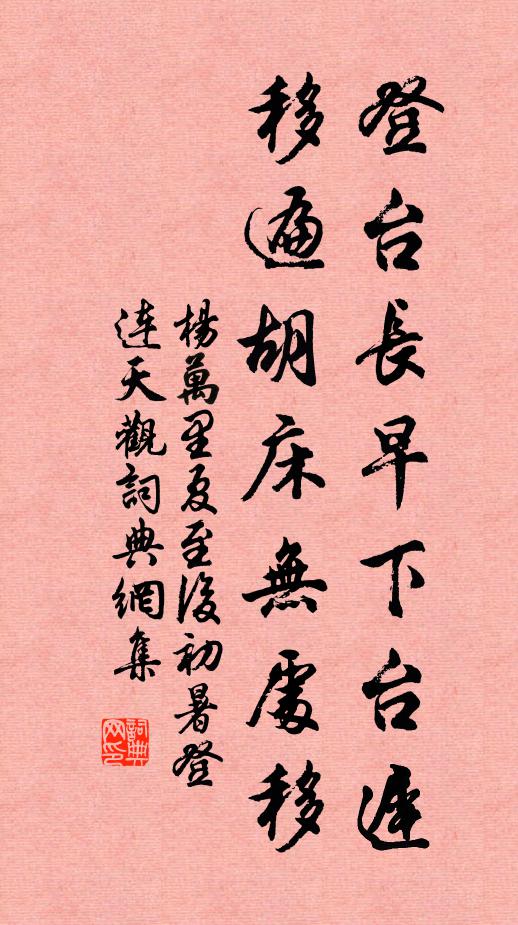 登台長早下台遲
移遍胡床無處移
楊萬里夏至後初暑登
連天觀詞典網集
詞典
网印